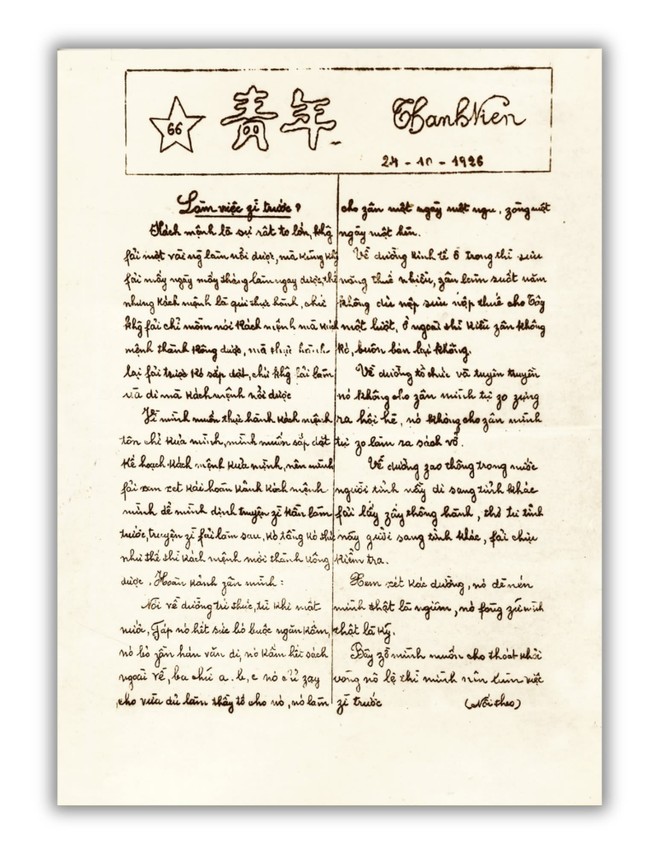 66
青年
Thanh Niên
24 - 10 - 1926
Làm việc zì trước?
Kách mệnh là sự rất to lớn, khg
fải một vài ng làm nổi được, mà kũng khg
fải mấy ngày mấy tháng làm ngay được, thế
nhưng kách mệnh là qúi thực hành, chứ
khg fải chỉ mồm nói kách mệnh mà kách
mệnh thành kông được, mà thực hành
lại fải trước kó sắp đặt, chứ khg fải làm
và đi mà kách mệnh nổi được
mình muốn thực hành kách mệnh
tôn chỉ kủa mình, mình muốn sắp đặt
kế hoạch kách mệnh kủa mình, nên mình
fải xem xét kái hoàn kảnh kách mệnh
mình để mình định truyện zì kần làm
trước, truyện zì fải làm sau, kó
như thế thì kách mệnh mới thành kông
được. Hoàn kảnh zân mình:
Nói về đường trí thức, từ khi mất
nước, Fáp nó hết sức bó buộc ngăn kấm,
nó bỏ zần hán văn đi, nó kấm hết sách
ngoài về, ba chữ a.b,c nó chỉ zạy
cho vừa đủ làm thầy tớ cho nó, nó làm
cho zân một ngày một ngu, zòng một
ngày một hèn.
Về đường kinh tế ở trong thì sưu
nặng thuế nhiều, zân làm suốt năm
không đủ nộp sưu nộp thuế cho Tây
một lượt, ở ngoài thì kiều zân không
kó, buôn bán lại không.
Về đường tổ chức và tuyên truyền
nó không cho zân mình tự zo zựng
ra hội hè, nó không cho zân mình
tự zo làm ra sách vở.
Về đường zao thông trong nước
người tỉnh này đi sang tỉnh khác
fải lấy zấy thông hành, thư từ tỉnh
này gửi sang tỉnh khác, fải chịu
kiểm tra.
Xem xét kác đường, nó đè nén
mình thật là ngiêm, nó fòng zữ mình
thật là kỹ.
Bây zờ mình muốn cho thoát khỏi
vòng nô lệ thì mình nên làm việc
zì trước (Nối theo)